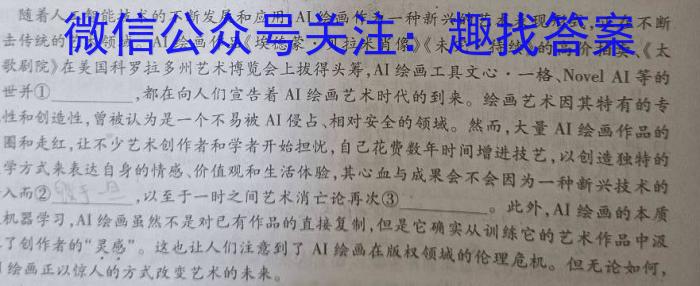 随着人工智能技术的不断发展和应用,AI绘画作为一种新兴的艺术表现形式,正在不断
微信公众号关注:趣找答案
去传统的领域AI绘画作品《埃德蒙·贝拉米肖像》《未待续》的高价拍卖、《太
歌剧院》在美国科罗拉多州艺术博览会上拔得头筹,AI绘画工具文心·一格、Novel AI等的
世并①________,都在向人们宣告着AI绘画艺术时代的到来。绘画艺术因其特有的专
性和创造性,曾被认为是一个不易被AI侵占、相对安全的领域。然而,大量AI绘画作品的
圈和走红,让不少艺术创作者和学者开始担忧,自己花费数年时间增进技艺,以创造独特的
学方式来表达自身的情感、价值观和生活体验,其心血与成果会不会因为一种新兴技术的
入而②________,以至于一时之间艺术消亡论再次③________。此外,AI绘画的本质
机器学习,AI绘画虽然不是对已有作品的直接复制,但是它确实从训练它的艺术作品中汲
了创作者的“灵感”。这也让人们注意到了AI绘画在版权领域的伦理危机。但无论如何,
绘画正以惊人的方式改变艺术的未来。